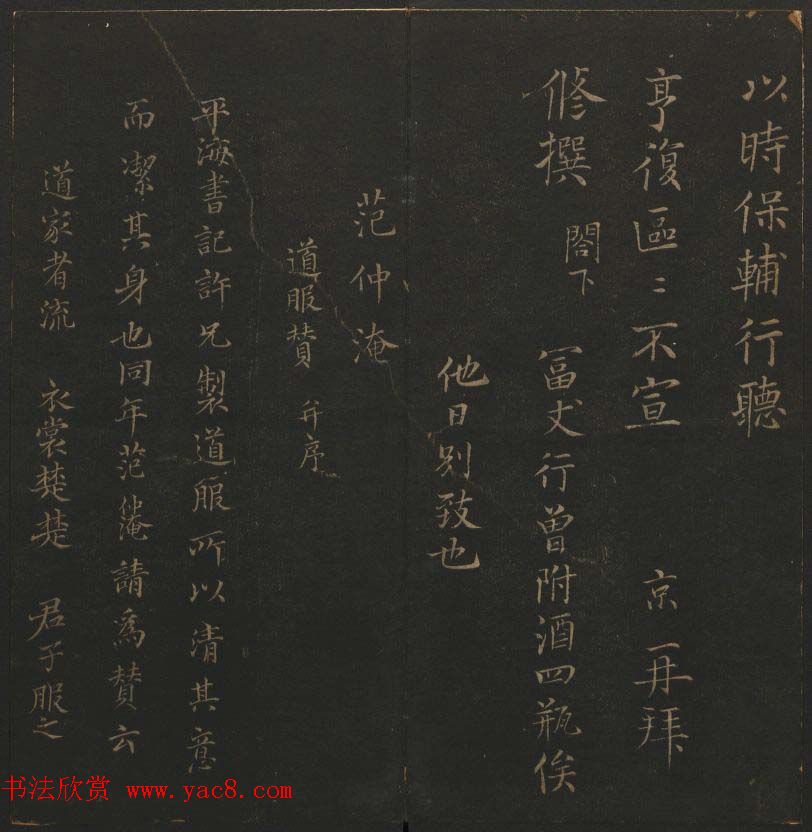 以時保輔行聽
亨復區〻不宣 京再拜
修撰 閣下 冨丈行曾附酒四瓶俟
他日別致也
范仲淹
道服贊 并序
平海書記許兄製道服所以清其意
而潔其身也同年范仲淹請爲贊云
道家者流 衣裳楚楚 君子服之
书法欣赏 www.yac8.com